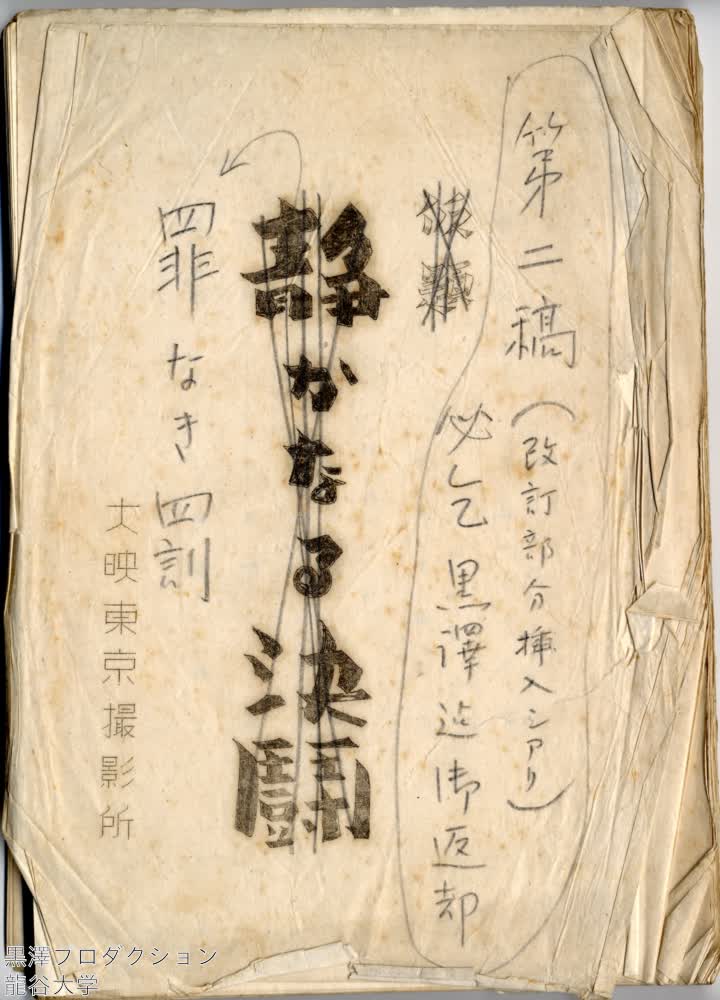 第二稿(改訂部分挿入シアリ)
必乞黒澤迄御返却
静かなる決闘
罪なき罰
大映東京撮影所
黒澤プロダクション
龍谷大学